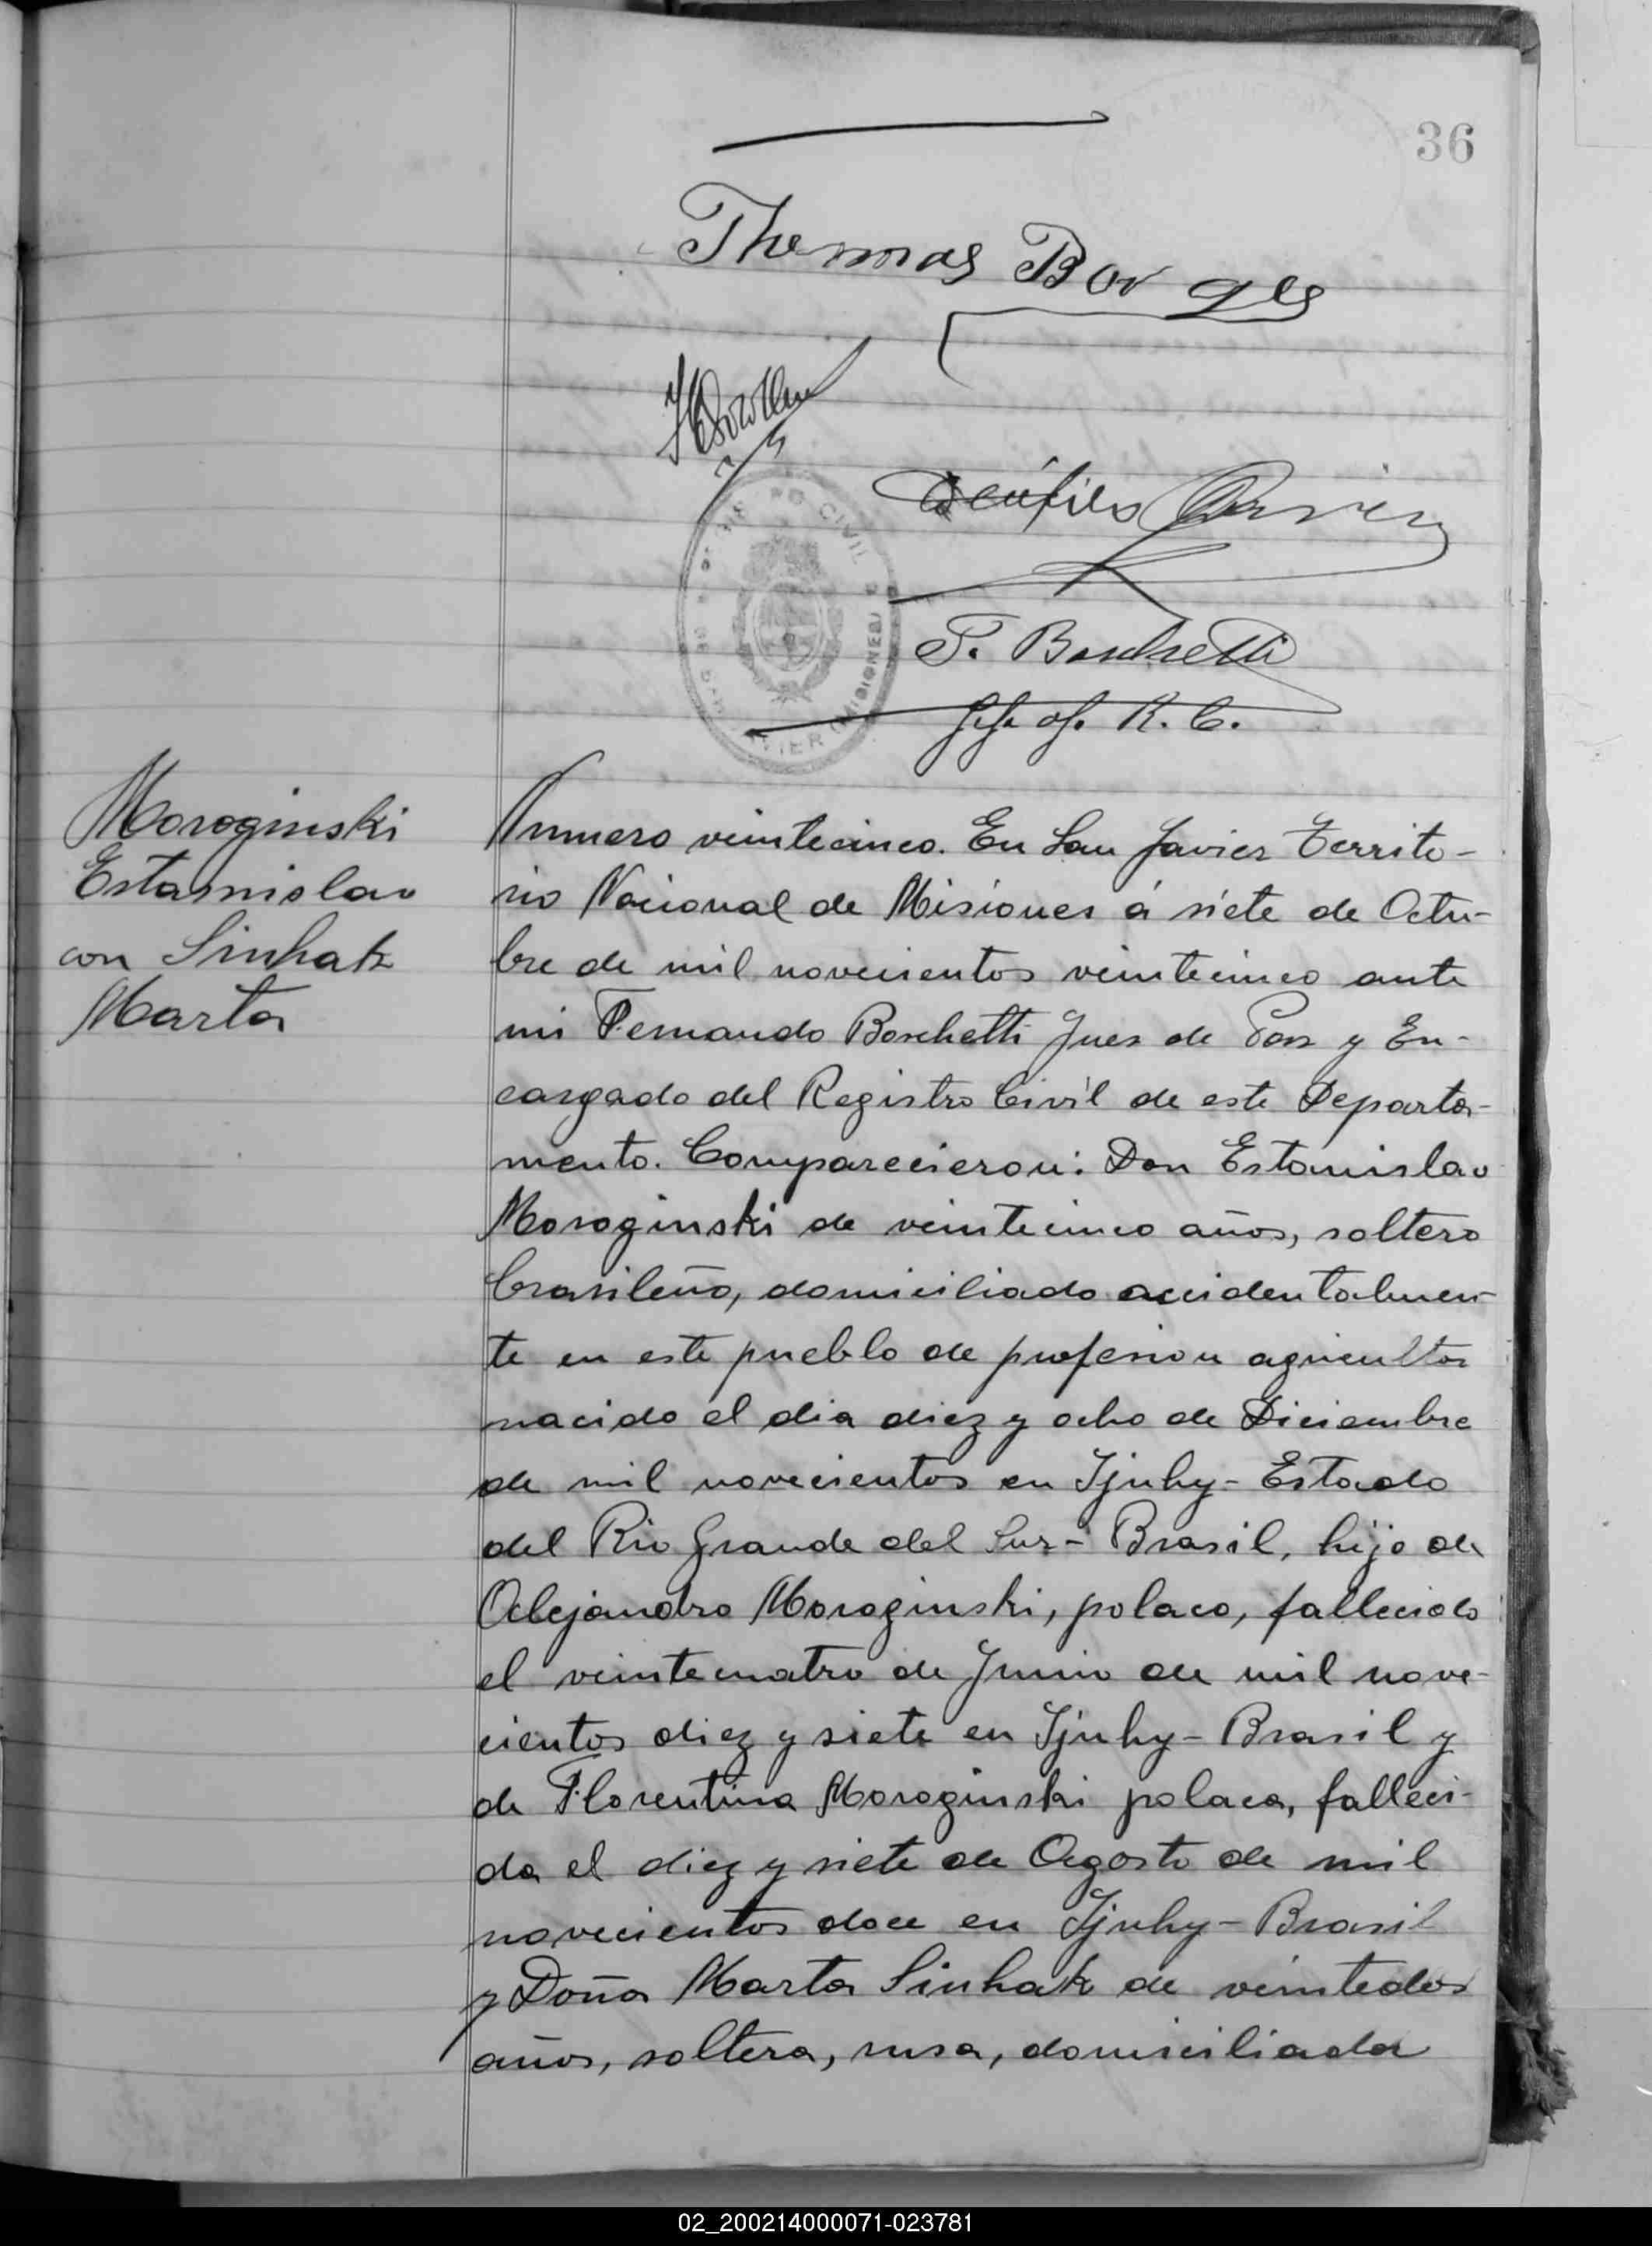 36
Thomas Borges
P. Boschetti
R. C.
REGISTRO CIVIL
SAN JAVIER (MISIONES)
Moroginski
Estasnislao
con Sinhak
Marta
Numero veintecinco. En San Javier Territo-
rio Nacional de Misiones á siete de Octu-
bre de mil novecientos veintecinco ante
mi Fernando Boschetti Juez de Paz y En-
cargado del Registro Civil de este Departa-
mento. Comparecieron: Don Estanislao
Moroginski de veintecinco años, soltero
brasileño, domiciliado accidentalmen-
te en este pueblo de profesion agricultor
nacido el dia diez y ocho de Diciembre
de mil novecientos en Ijuhy - Estado
del Rio Grande del Sur - Brasil, hijo de
Alejandro Moroginski, polaco, fallecido
el veintecuatro de Junio de mil nove-
cientos diez y siete en Ijuhy - Brasil y
de Florentina Moroginski polaca, falleci-
da el diez y siete de Agosto de mil
novecientos doce en Ijuhy - Brasil
y Doña Marta Sinhak de veintedos
años, soltera, rusa, domiciliada
02_200214000071-023781